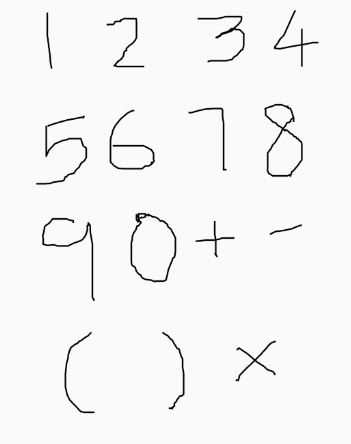 1 2 3 4
5 6 7 8
9 0 + -
( ) ×